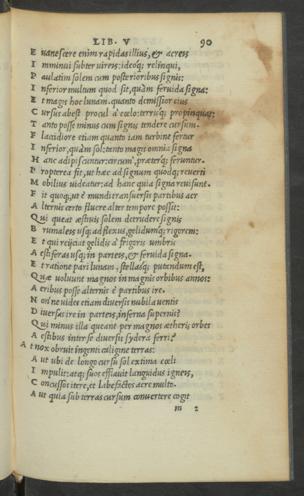 LIB. V 90
E uanescere enim rapidas illius, & acreis
I mminui subter uireis: ideoq; relinqui,
P aulatim solem cum posterioribus signis:
I nferior multum quod sit, quàm feruida signa:
E t magis hoc lunam. quanto demissior eius
C ursus abest procul à cælo: terrisq; propinquat:
T anto posse minus cum signis tendere cursum.
F laccidiore etiam quanto iam turbine fertur
I nferior, quàm sol: tanto magis omnia signa
H anc adipiscuntur: circum', præterq; feruntur.
P ropterea fit, ut hæc ad signum quodq; reuerti
M obilius uideatur: ad hanc quia signa reuisunt.
F it quoq; ut è mundi transuersis partibus aer
A lternis certo fluere alter tempore possit:
Q ui queat æstiuis solem detrudere signis
B rumaleis usq; ad flexus, gelidumq; rigorem:
E t qui reijciat gelidis à frigoris umbris
A estiferas usq; in parteis, & feruida signa.
E t ratione pari lunam, stellasq; putendum est,
Q uæ uoluunt magnos in magnis orbibus annos:
A eribus posse alternis è partibus ire.
N onne uides etiam diuersis nubila uentis
D iuersas ire in parteis, inferna supernis?
Q ui minus illa queant per magnos ætheris orbes
A estibus inter se diuersis sydera ferri?
A t nox obruit ingenti caligine terras:
A ut ubi de longo cursu sol extima cæli
I mpulit: atq; suos efflauit languidus igneis,
C oncussos itere, et labefactos aere multo.
A ut quia sub terras cursum conuertere cogit
m 2